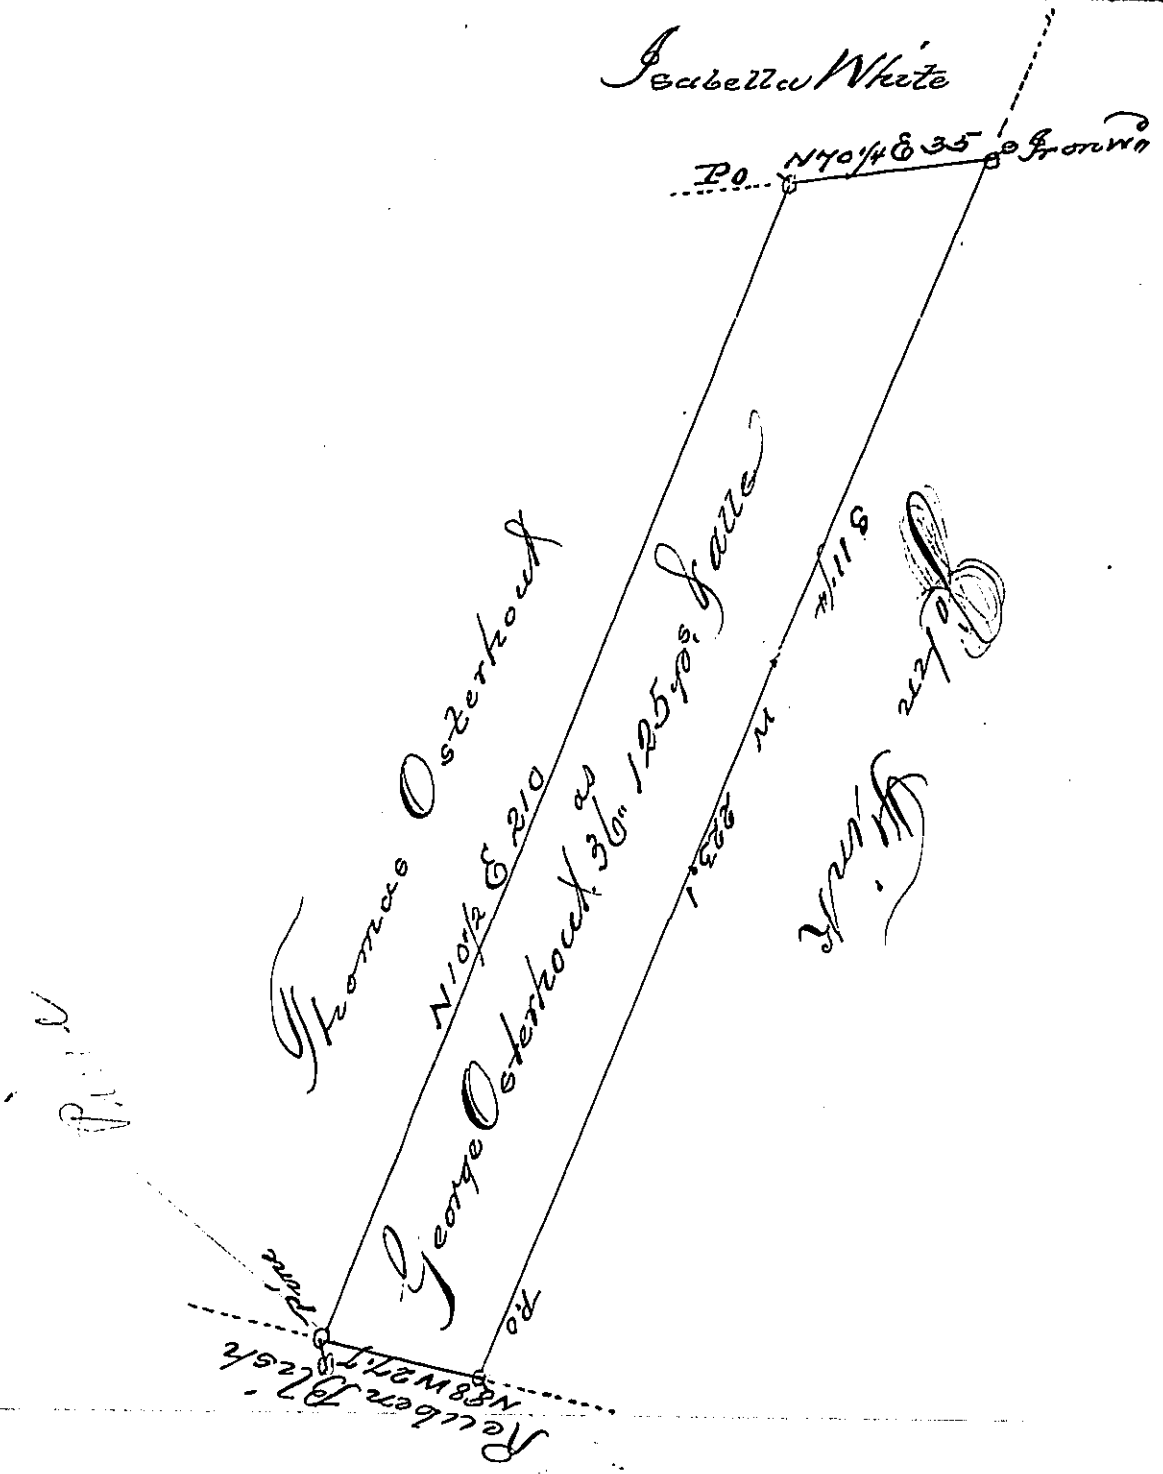 Isabella White
Po N70 1/4 E 35 Ironwd
Thomas Osterhout
N 10 1/2 E 210
George Osterhout. 36 as 125 ps. & alle
N 11 1/4 E
223.1
John
Po
Pine
N88W 27.7
Reuben Blish